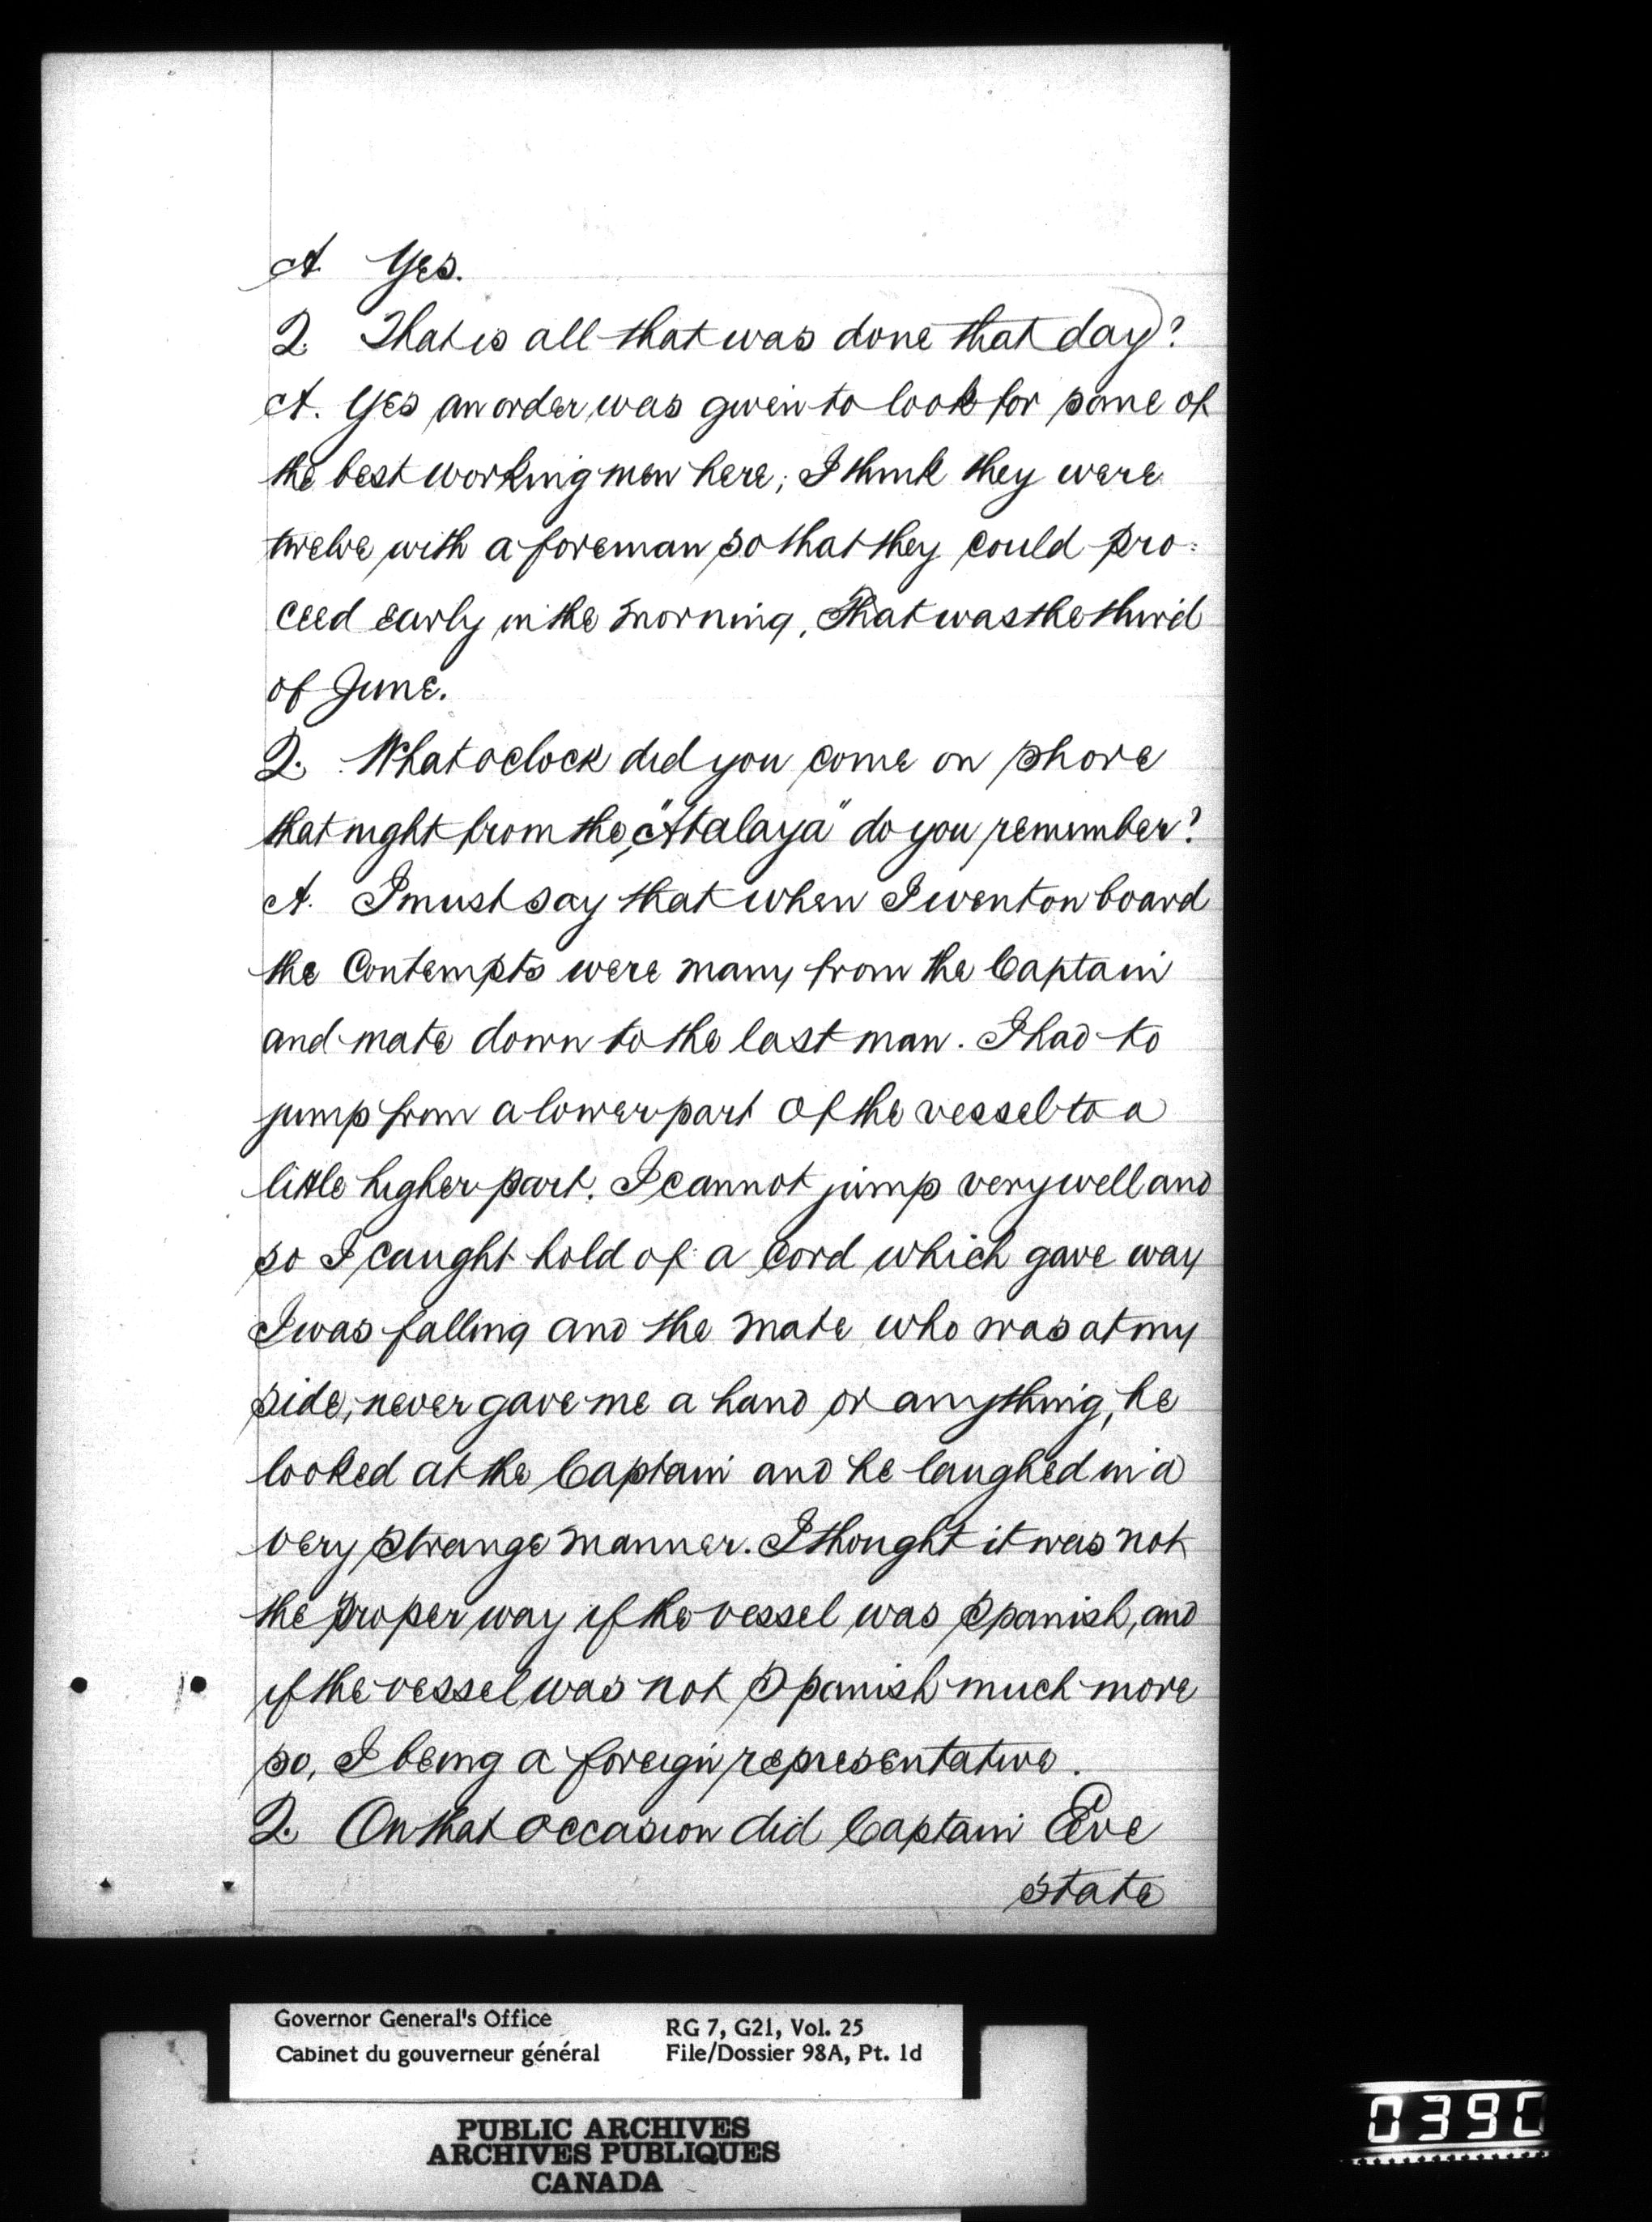 A. Yes.
Q. That is all that was done that day?
A. Yes an order was given to look for some of
the best working men here; I think they were
twelve with a foreman so that they could pro=
ceed early in the morning. That was the third
of June.
Q. What oclock did you come on shore
that night from the "Atalaya" do you remember?
A. I must say that when I went on board
the Contempts were many from the Captain
and mate down to the last man. I had to
jump from a lower part of the vessel to a
little higher part. I cannot jump very well and
so I caught hold of a cord which gave way
I was falling and the mate who was at my
side, never gave me a hand or anything, he
looked at the Captain and he laughed in a
very strange manner. I thought it was not
the proper way if the vessel was Spanish, and
if the vessel was not Spanish much more
so, I being a foreign representative.
Q. On that occasion did Captain Eve
state
Governor General's Office
Cabinet du gouverneur général
RG 7, G21, Vol. 25
File/Dossier 98A, Pt. 1d
PUBLIC ARCHIVES
ARCHIVES PUBLIQUES
CANADA
0390